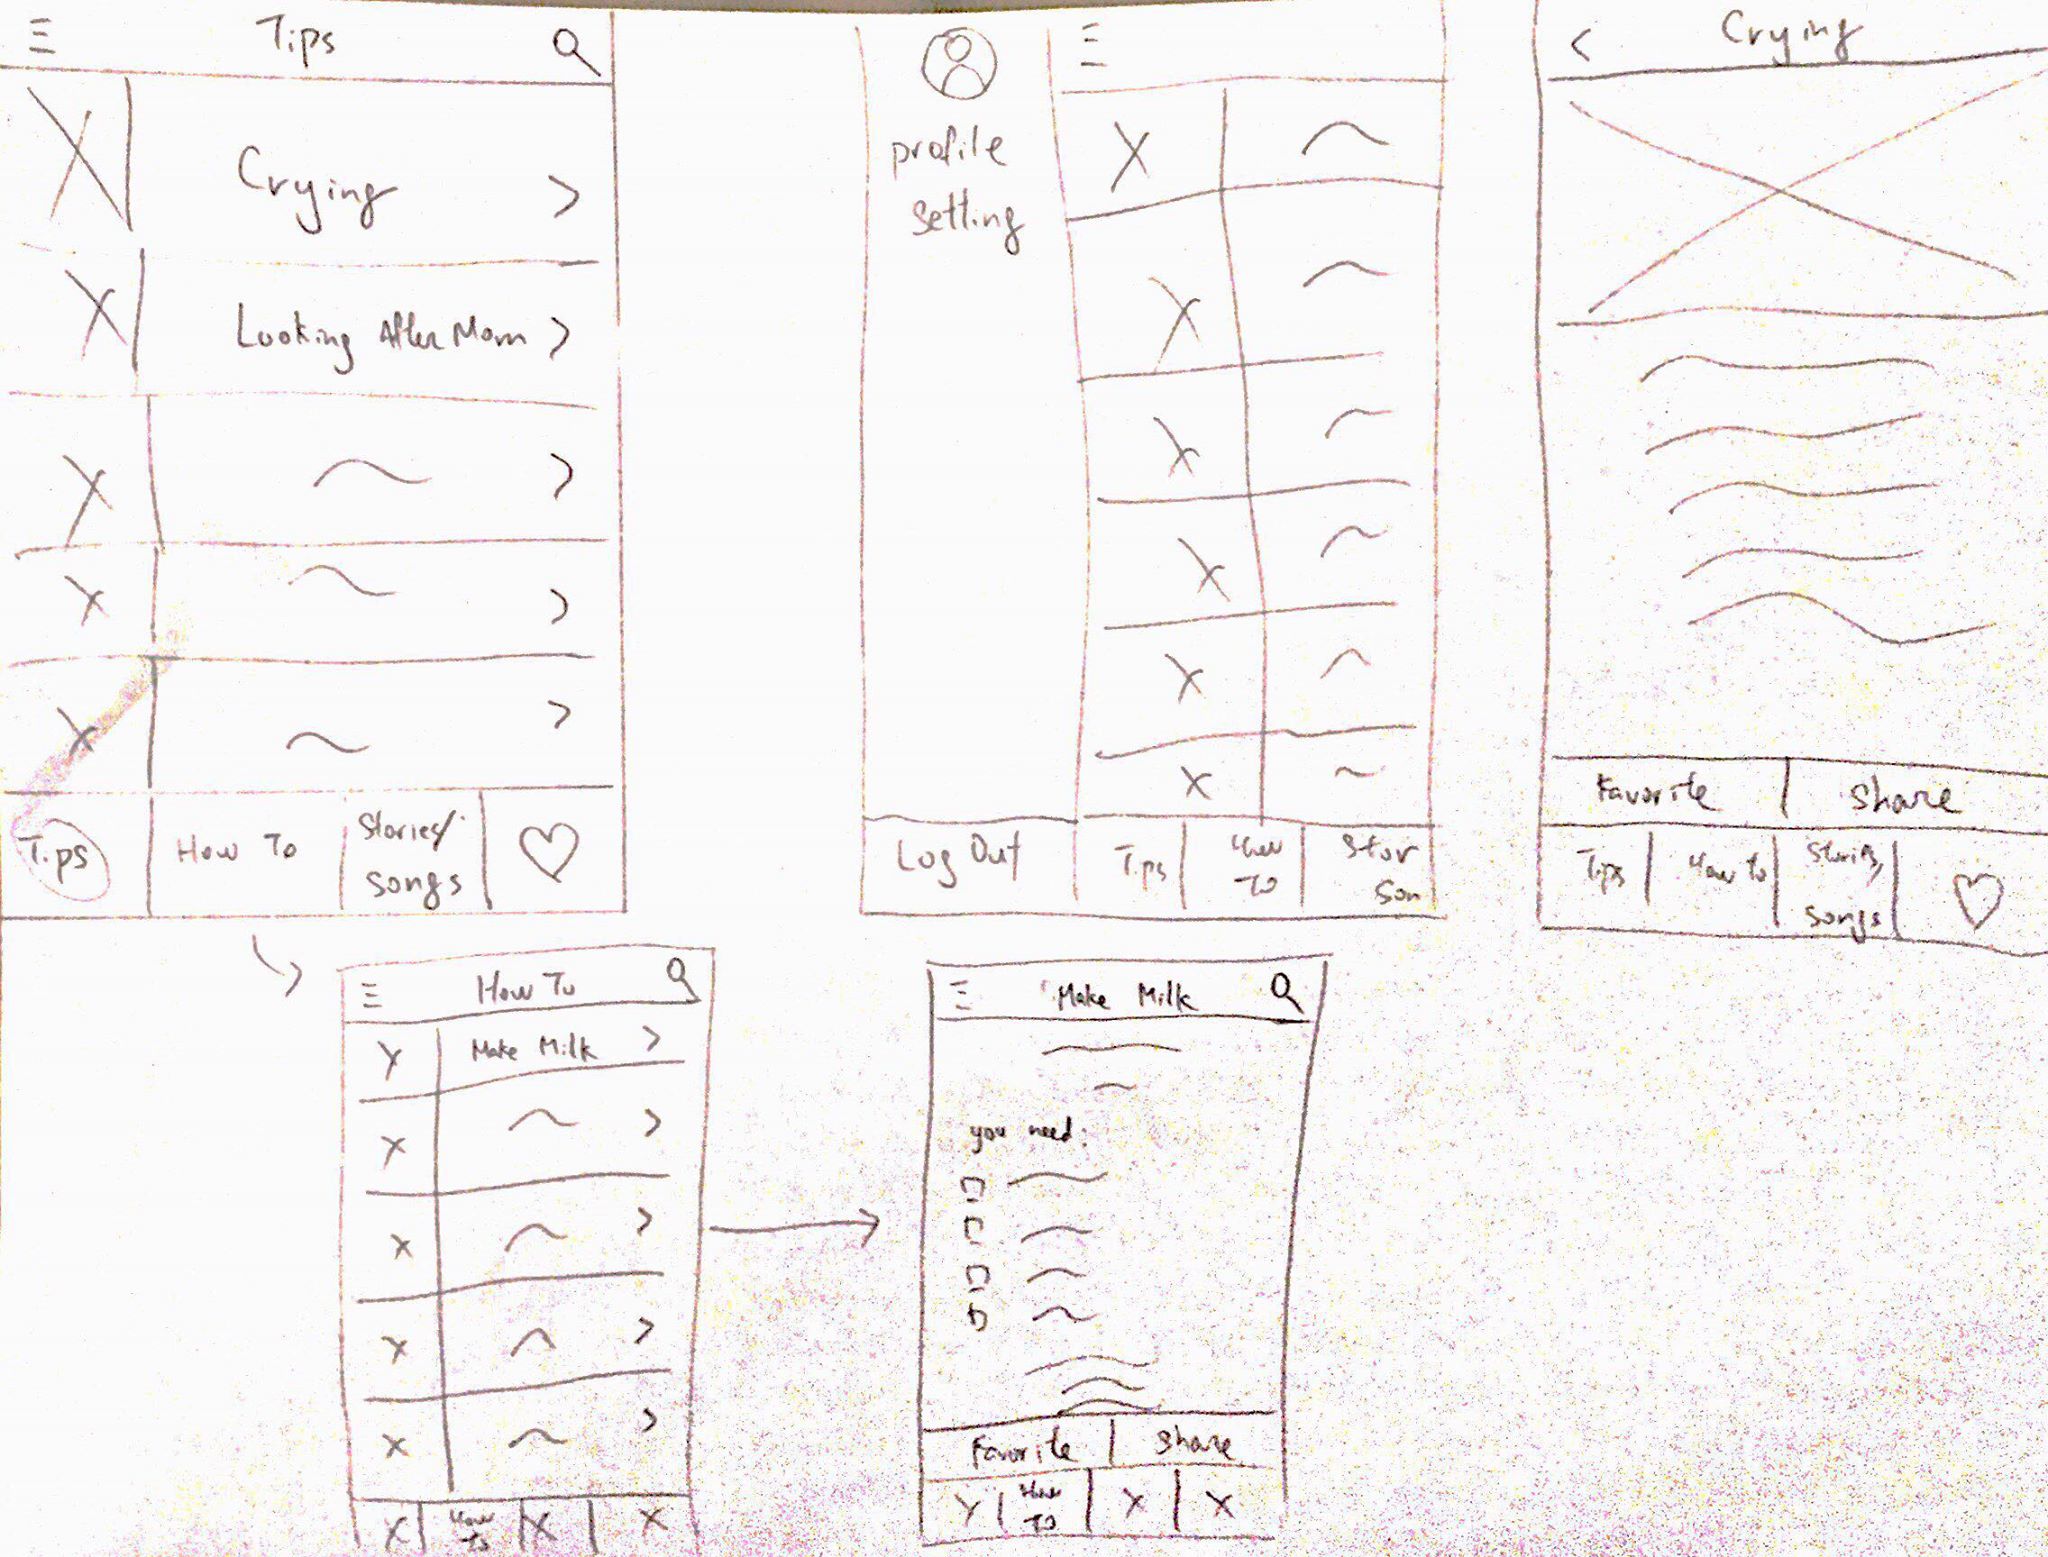 Tips
Crying
Looking After Mom
Tips
How To
Stories/
Songs
profile
setting
Log Out
Tips
How
To
Stor
Son
Crying
Favorite
Share
Tips
How To
Stories,
Songs
How To
Make Milk
How
To
Make Milk
you need:
Favorite
Share
How
To